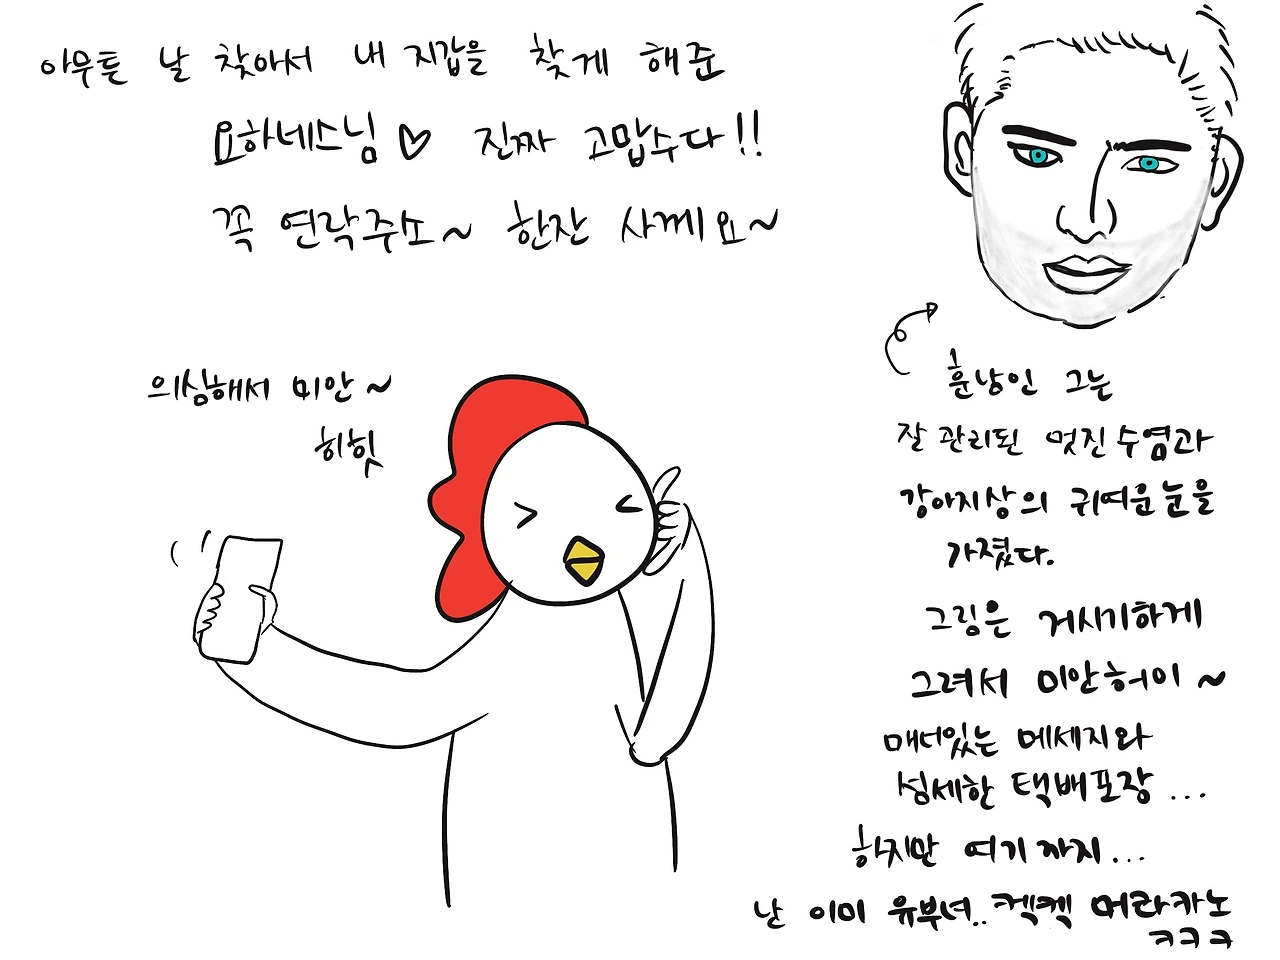 아무튼 날 찾아서 내 지갑을 찾게 해준
요하네스님♡ 진짜 고맙수다!!
꼭 연락주쇼~ 한잔 사께요~
의심해서 미안~
히힛
훈남인 그는
잘 관리된 멋진 수염과
강아지상의 귀여운 눈을
가졌다.
그림은 거시기하게
그려서 미안허이~
매너있는 메세지와
섬세한 택배포장...
하지만 여기까지...
난 이미 유부녀.. 켁켁 머라카노
ㅋㅋㅋ